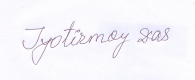 Jyotirmoy das